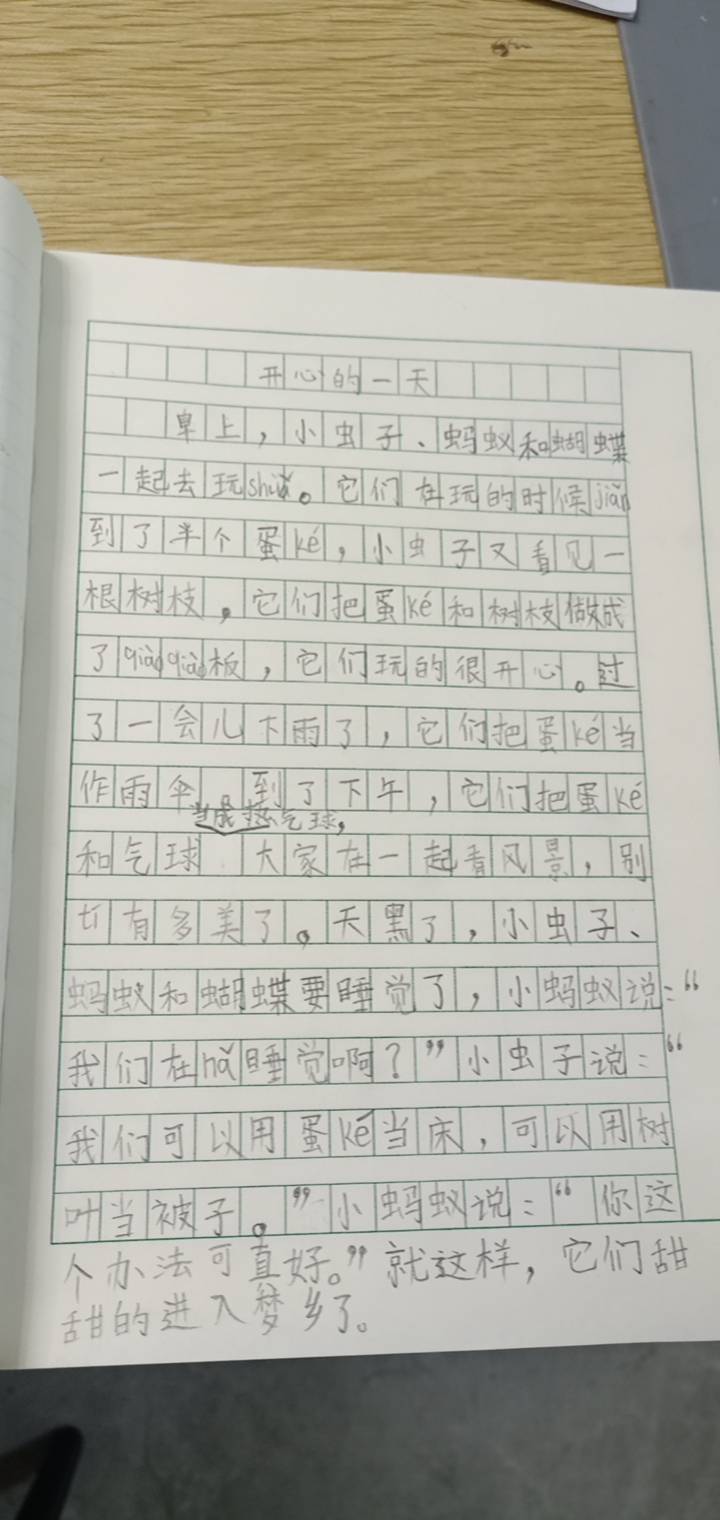 开心的一天
早上，小虫子、蚂蚁和蝴蝶
一起去玩shuǎ。它们在玩的时候jiǎn
到了半个蛋ké，小虫子又看见一
根树枝，它们把蛋ké和树枝做成
了qiàoqiào板，它们玩的很开心。过
了一会儿下雨了，它们把蛋ké当
作雨伞。到了下午，它们把蛋ké
当成热气球，
和气球 大家在一起看风景，别
tí有多美了。天黑了，小虫子、
蚂蚁和蝴蝶要睡觉了，小蚂蚁说：“
我们在nǎ睡觉啊？”小虫子说：“
我们可以用蛋ké当床，可以用树
叶当被子。”小蚂蚁说：“你这
个办法可真好。”就这样，它们甜
甜的进入梦乡了。